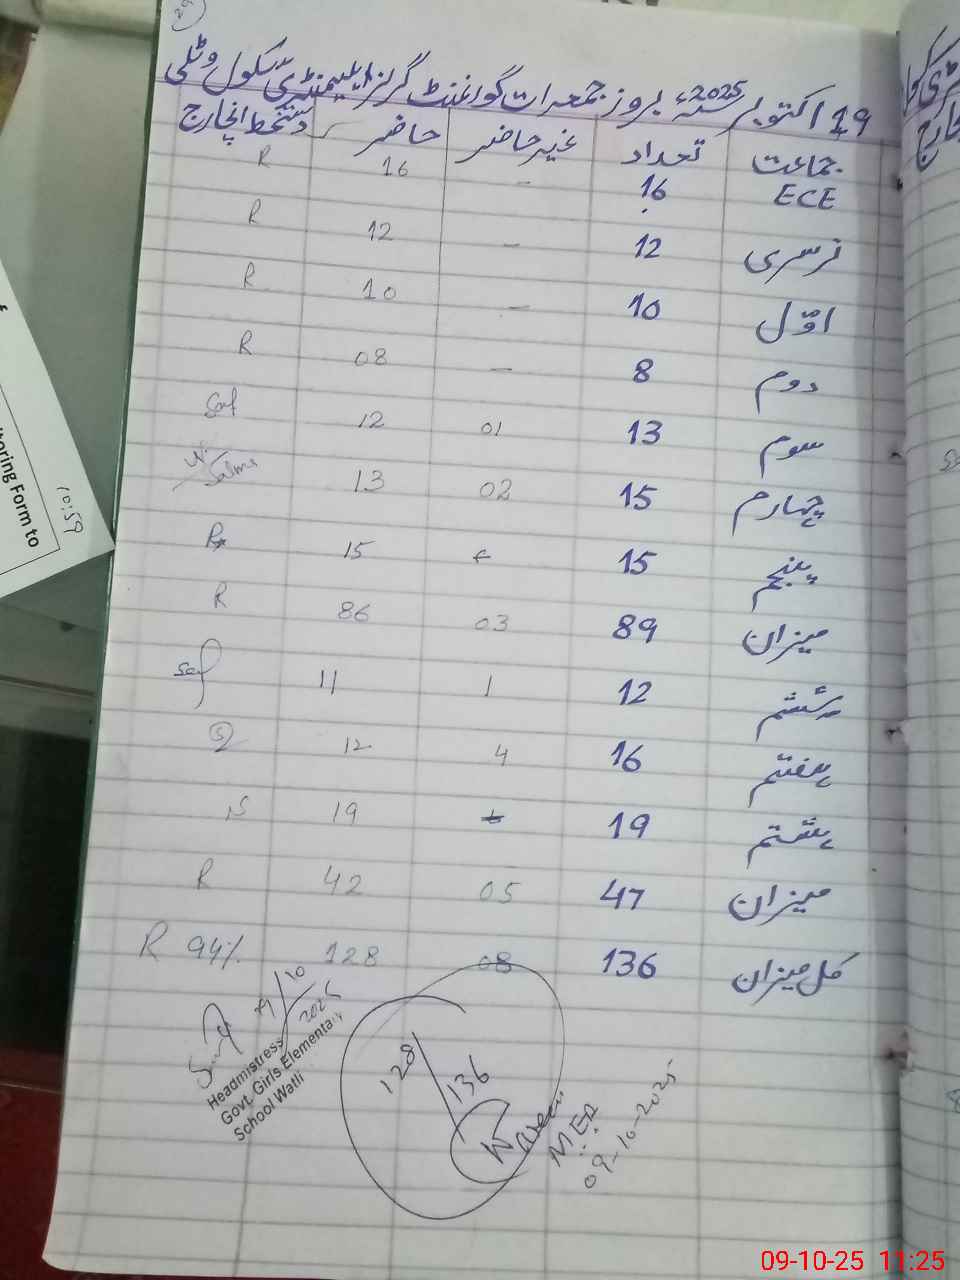 19 اکتوبر 2025ء بروز جمعرات گورنمنٹ گرلز ایلیمنٹری سکول وٹلی
جماعت تعداد غیر حاضر حاضر دستخط انچارج
ECE 16 - 16 R
نرسری 12 - 12 R
اوّل 10 - 10 R
دوم 8 - 08 R
سوم 13 01 12 Saf
چہارم 15 02 13 Salma
پنجم 15 15 R
میزان 89 03 86 R
ششم 12 1 11 Saf
ہفتم 16 4 12
ہشتم 19 19
میزان 47 05 42 R
کل میزان 136 08 128 94% R
9/10
2025
Headmistress
Govt. Girls Elementary
School Watli
128/136
M.E.A
09-10-2025
toring Form to
10:59
09-10-25 11:25